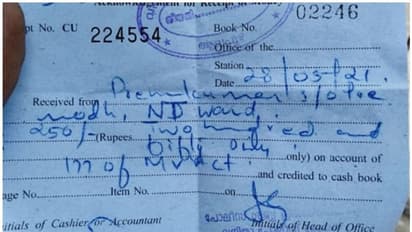 Acknowledgement for Receipt of Money
Book No. 02246
pt No. CU 224554
Office of the
Station
Date 28/05/21
Received from Premkumar s/o
ND Ward.
250/- (Rupees Two hundred and
Fifty only only) on account of
177 of MV Act. and credited to cash book
age No. Item No. on
Initials of Cashier or Accountant
Initials of Head of Office